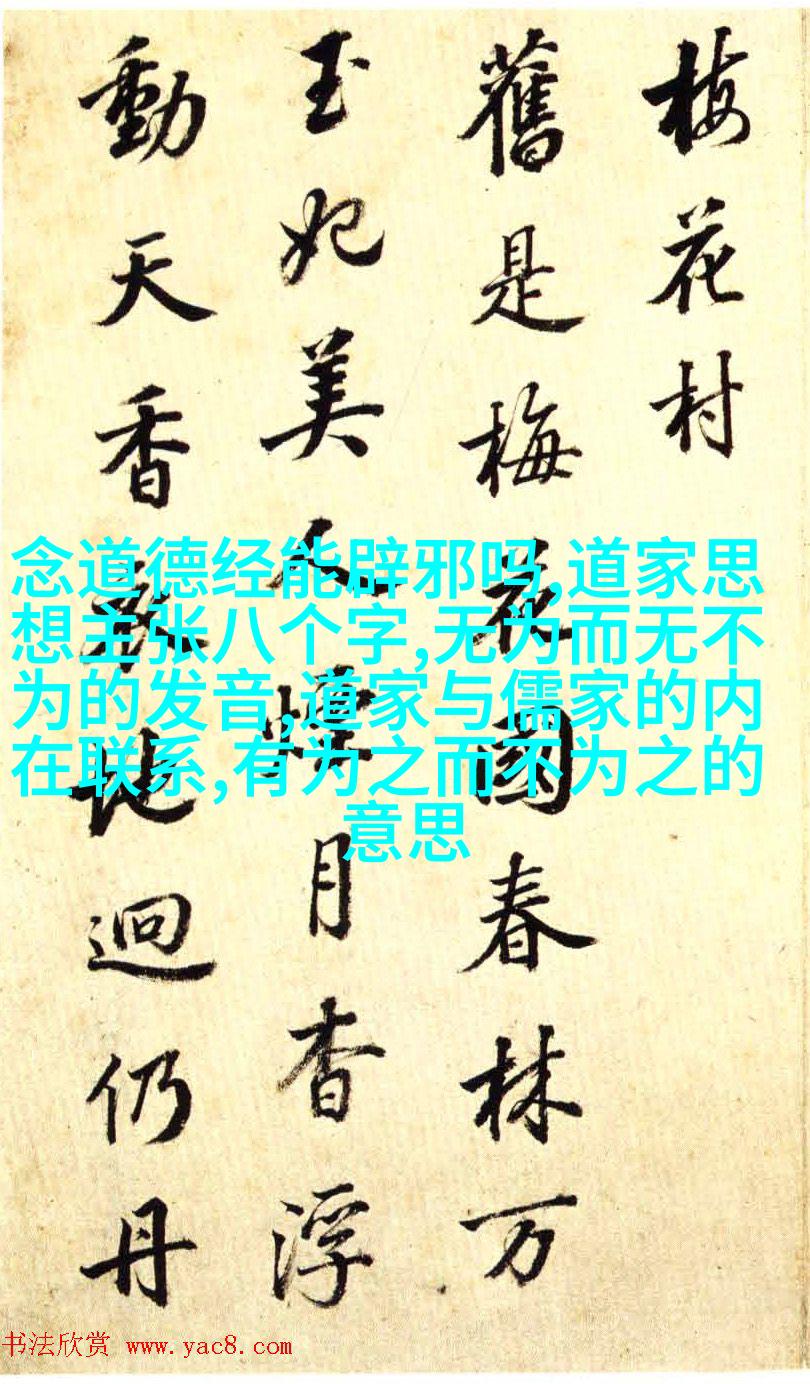 梅花村
舊是梅花國春林万
玉妃美人嬋月杳浮
動天香散地迥仍丹
念道德经能辟邪吗,道家思
想主张八个字,无为而无不
为的发音,道家与儒家的内
在联系,有为之而不为之的
意思
书法欣赏 www.yac8.com